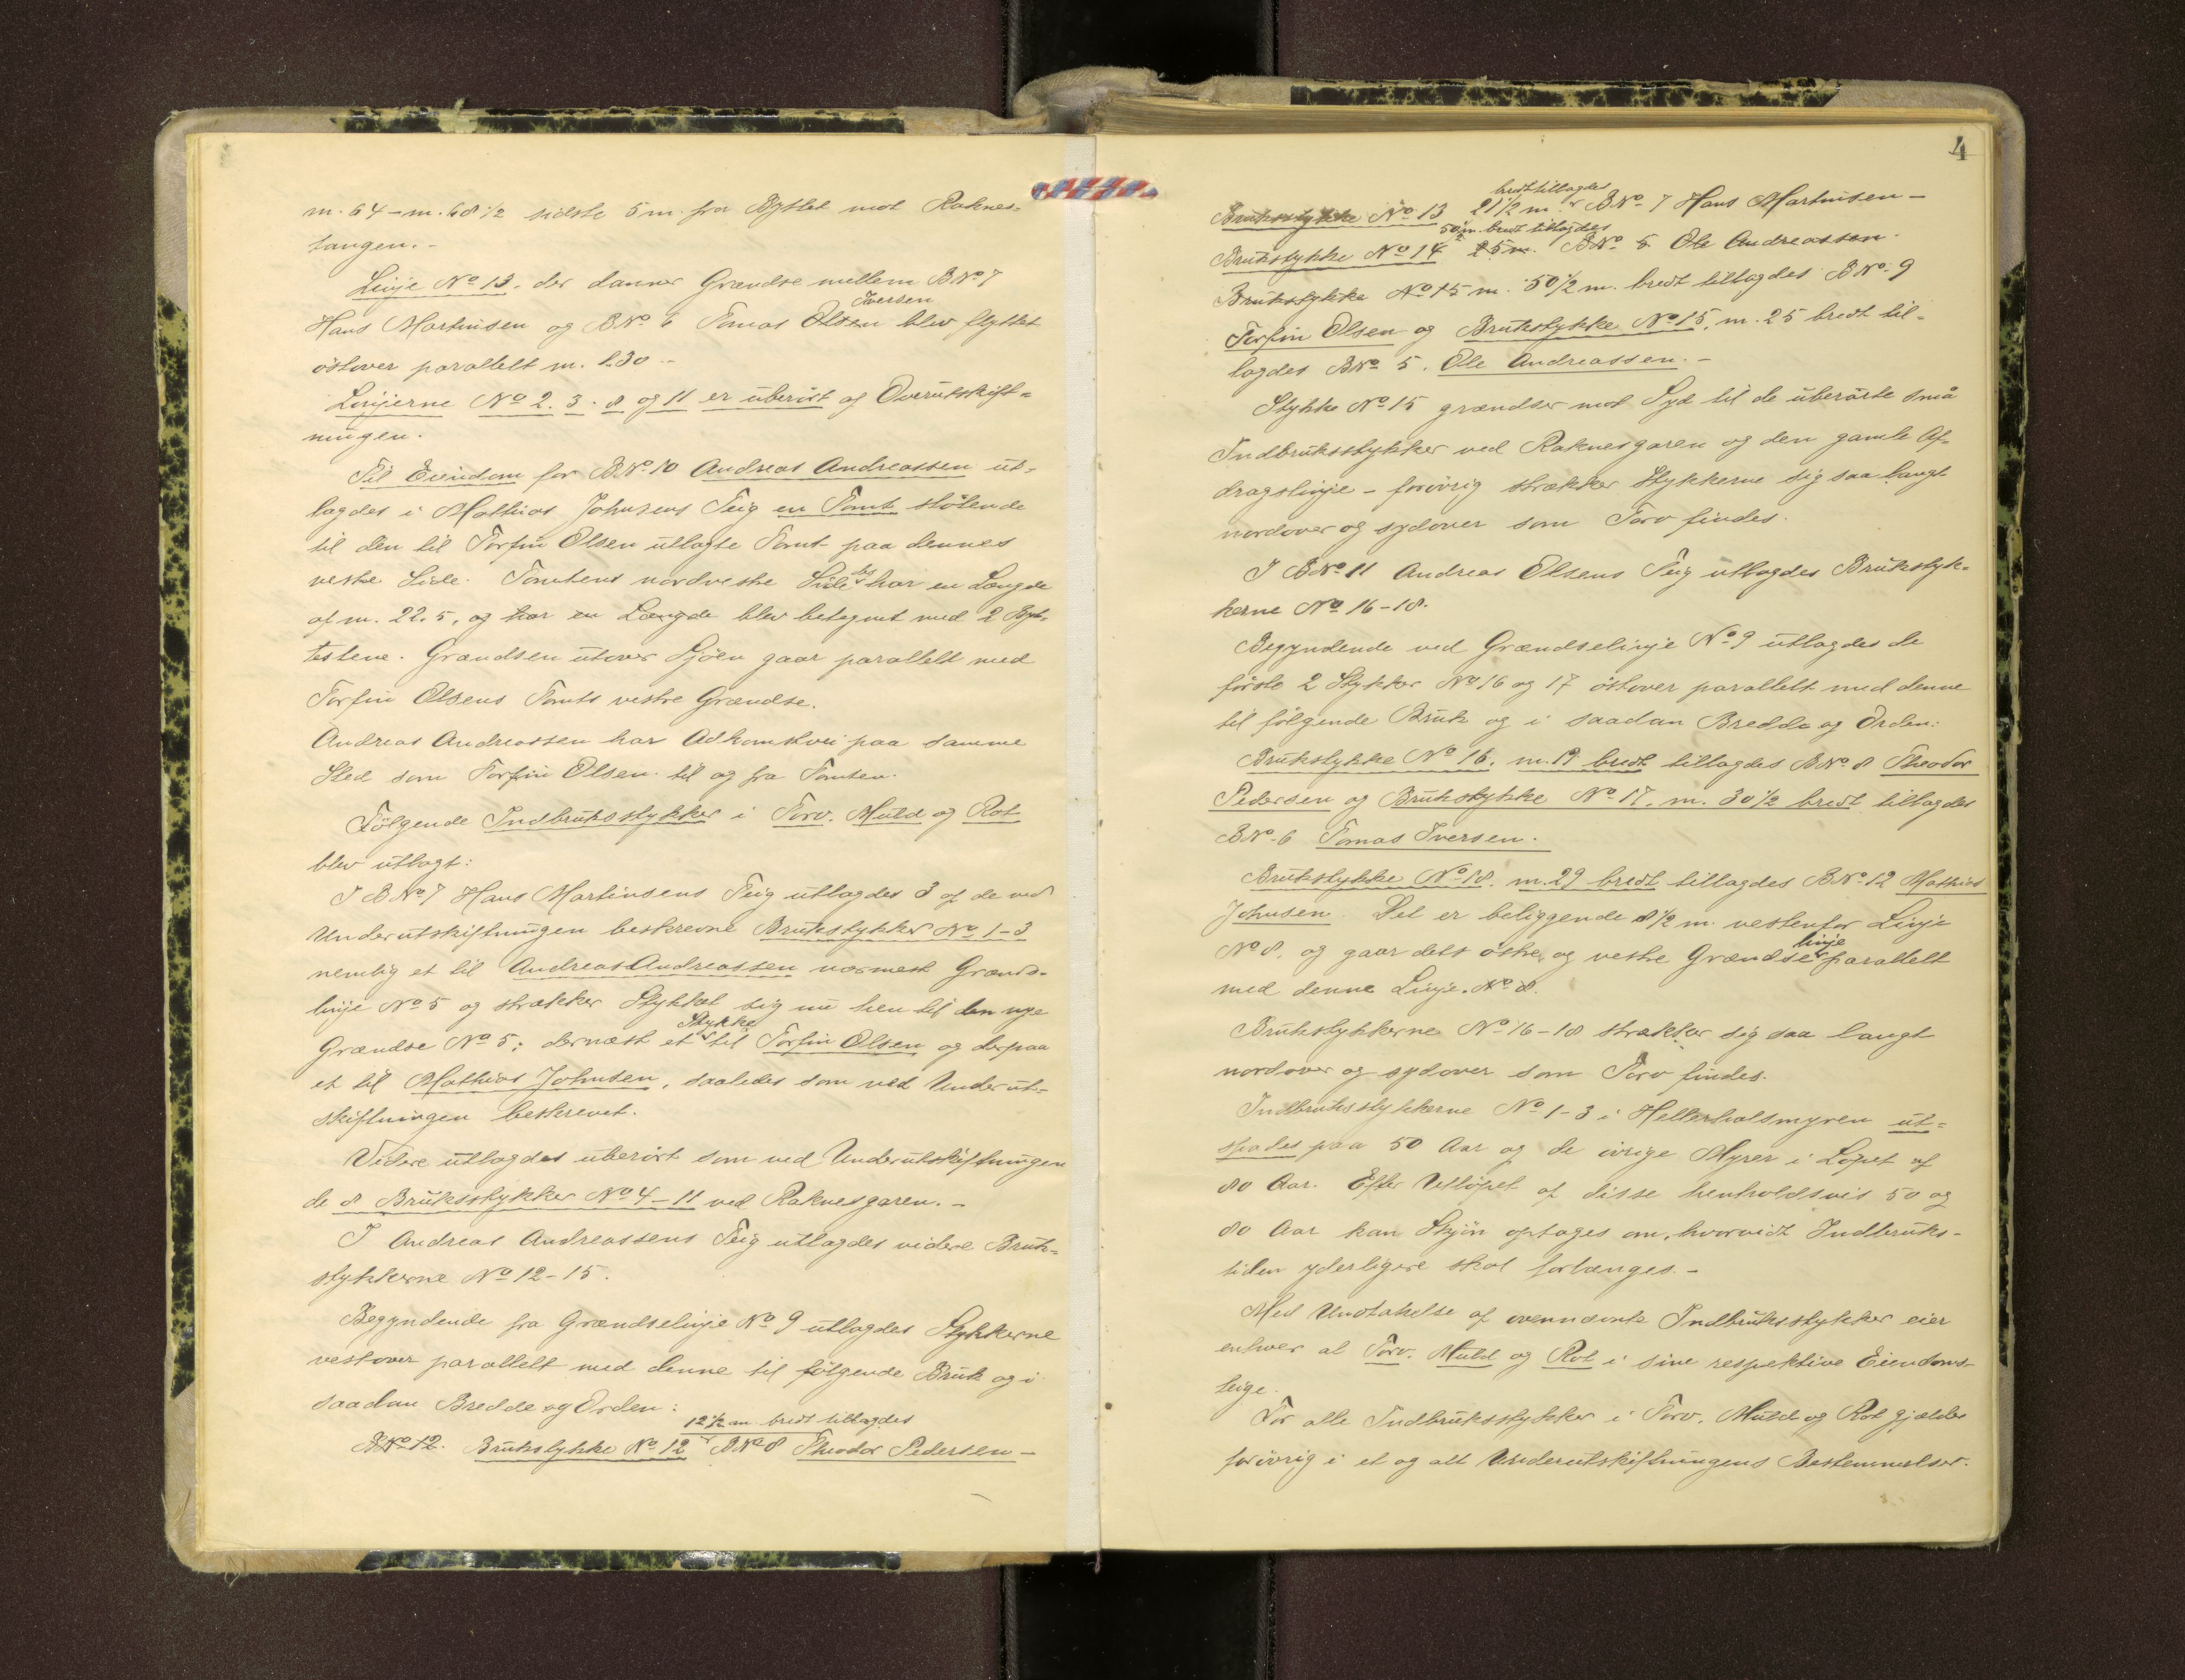 m. 64 – m. 68 1/2 sidste 5 m. fra Byttet mot Raknes-
tangen. -
Linje No 13. der danner Grændse mellem B No 7
Iversen
Hans Martinsen og B No 6 Tomas Olsen blev flyttet
östover parallelt m. 1.30 -
Linjerne No 2. 3. 8 og 11 er uberört af Overutskift-
ningen.
Til Eiendom for B.No 10 Andreas Andreassen ut-
lagdes i Mathias Johnsens Teig en Tomt stötende
til den til Torfin Olsen utlagte Tomt paa dennes
vestre Side. Tomtens nordvestre Side har en Længde
af m. 22.5, og har en Længde blev betegnet med 2 Byt-
testene. Grændsen utover Sjöen gaar parallelt med
Torfin Olsens Tomts vestre Grændse.
Andreas Andreassen har Adkomstvei paa samme
Sted som Torfin Olsen til og fra Tomten.
Fölgende Indbruksstykker i Torv. Muld og Rot
blev utlagt:
I B No 7 Hans Martinsens Teig utlagdes 3 af de ved
Underutskiftningen beskrevne Brukstykker No 1-3
nemlig et til Andreas Andreassen nærmest Grænds-
linje No 5 og strækker Stykket sig nu hen til den nye
Stykke
Grændse No 5; dernæst et til Torfin Olsen og derpaa
et til Mathias Johnsen, saaledes som ved Underut-
skiftningen beskrevet.
Videre utlagdes uberört som ved Underutskiftningen
de 8 Bruksstykker No 4-11 ved Raknesgaren. -
I Andreas Andreassens Teig utlagdes videre Bruk-
stykkerne No 12-15.
Begyndende fra Grændselinje No 9 utlagdes Stykkerne
vestover parallelt med denne til fölgende Bruk og i
saadan Bredde og Orden:
12 1/2 m bredt tillagdes
B No 12. Brukstykke No 12 B No 8 Theodor Pedersen -
4
bredt tillagdes
Brukstykke No 13 21 1/2 m. B No 7 Hans Martinsen -
50 m. bredt tillagdes
Brukstykke No 14 25 m. B No 5 Ole Andreassen.
Brukstykke No 15 m. 50 1/2 m. bredt tillagdes B No 9
Torfin Olsen og Brukstykke No 15, m. 25 bredt til-
lagdes B No 5. Ole Andreassen. -
Stykke No 15 grændser mot Syd til de uberörte små
Indbruksstykker ved Raknesgaren og den gamle Af-
dragslinje - forövrig strækker Stykkerne sig saa langt
nordover og sydover som Torv findes.
I B No 11 Andreas Olsens Teig utlagdes Brukstyk-
kerne No 16-18.
Begyndende ved Grændselinje No 9 utlagdes de
förste 2 Stykker No 16 og 17 östover parallelt med denne
til fölgende Bruk og i saadan Bredde og Orden:
Brukstykke No 16. m. 19 bredt tillagdes B No 8 Theodor
Pedersen og Brukstykke No 17. m. 30 1/2 bredt tillagdes
B No 6 Tomas Iversen.
Brukstykke No 18. m. 29 bredt tillagdes B No 12 Mathias
Johnsen. Det er beliggende 8 1/2 m. vestenfor Linje
linje
No 8, og gaar dets östre og vestre Grændse parallelt
med denne Linje. No 8.
Brukstykkerne No 16-18 strækker sig saa langt
nordover og sydover som Torv findes.
Indbruksstykkerne No 1-3 i Hellerhalsmyren ut-
spades paa 50 Aar og de övrige Myrer i Löpet af
80 Aar. Efter Utlöpet af disse henholdsvis 50 og
80 Aar kan Skjön optages om, hvorvidt Indbruks-
tiden yderligere skal forlænges. -
Med Undtakelse af ovennævnte Indbruksstykker eier
enhver al Torv. Muld og Rot i sine respektive Eiendoms-
teige.
For alle Indbruksstykker i Torv, Muld og Rot gjælder
forövrig i et og alt Underutskiftningens Bestemmelser.